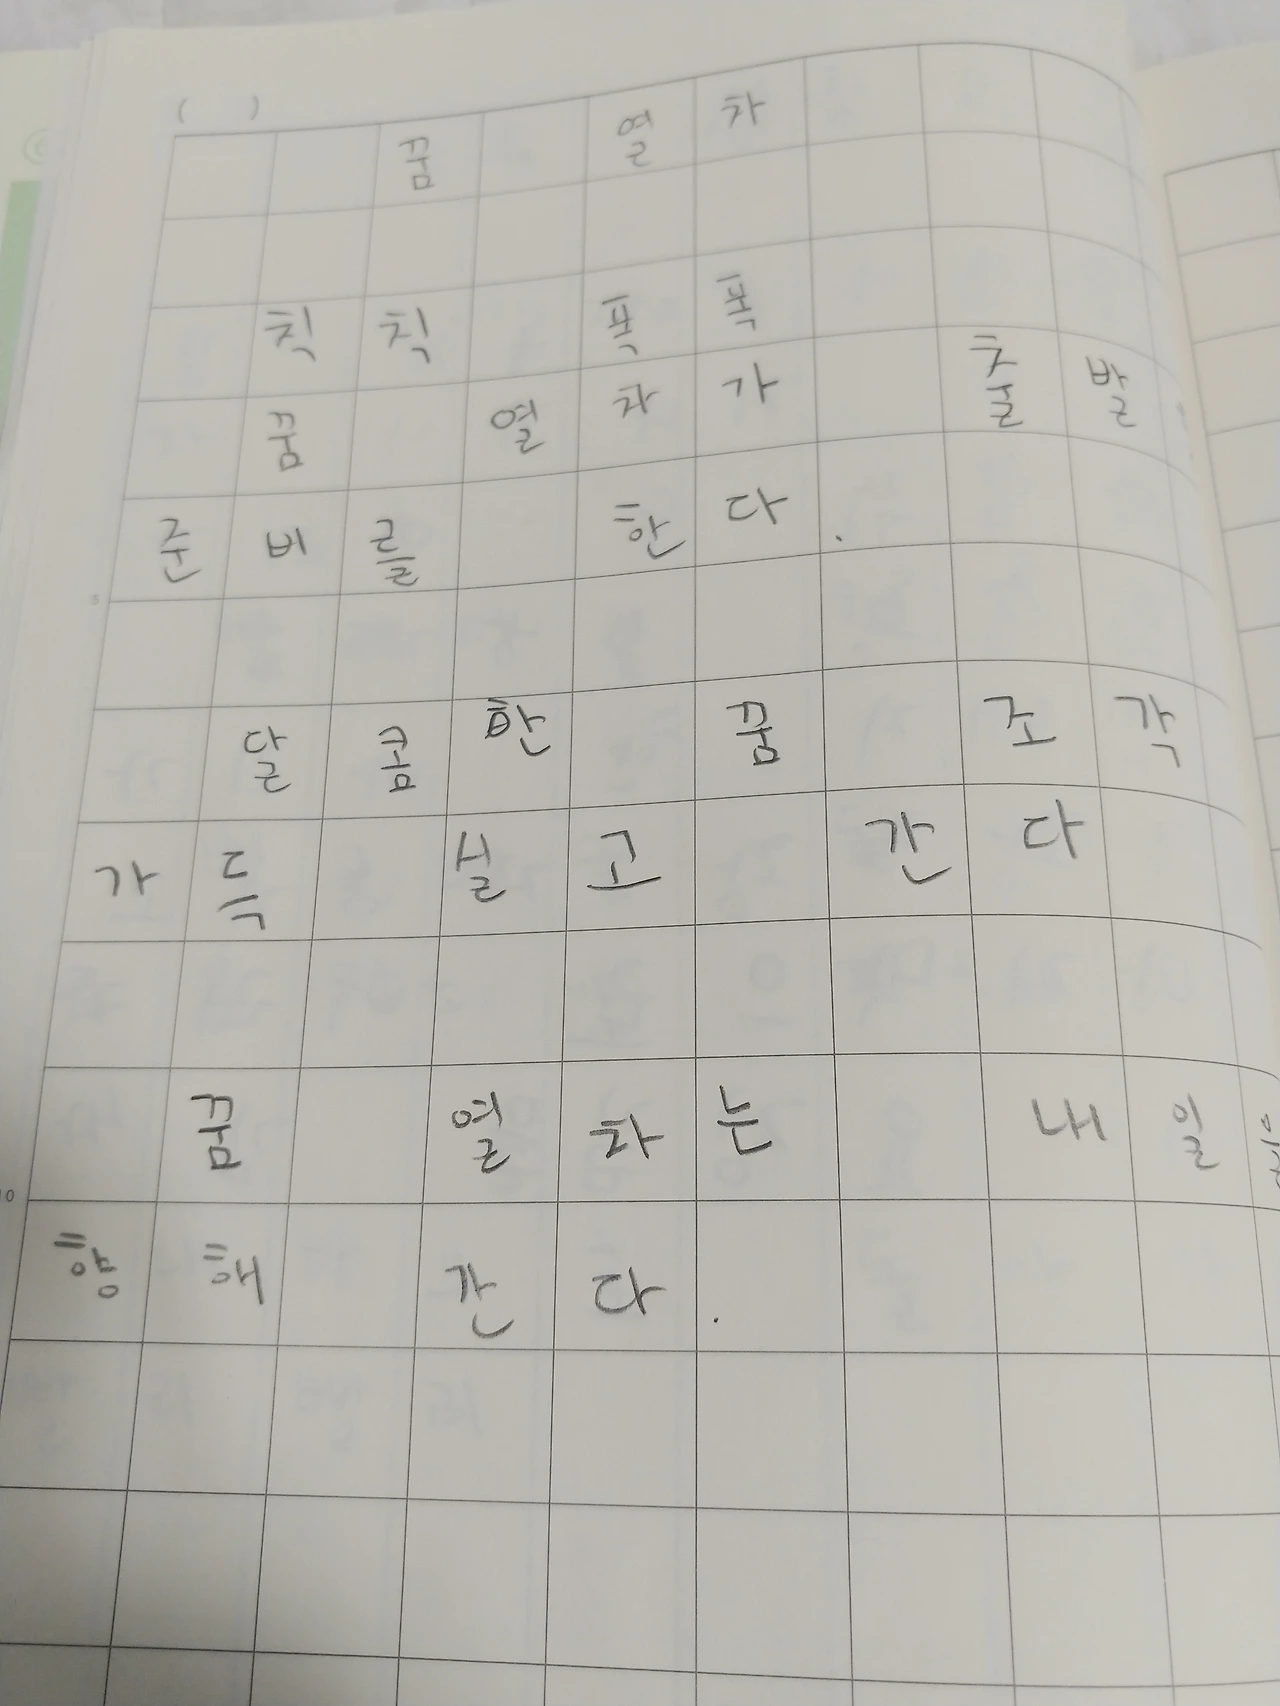 ( )
꿈 열차
칙칙 폭폭
꿈 열차가 출발
준비를 한다.
5
달콤한 꿈 조각
가득 실고 간다
꿈 열차는 내일을
10
향해 간다.